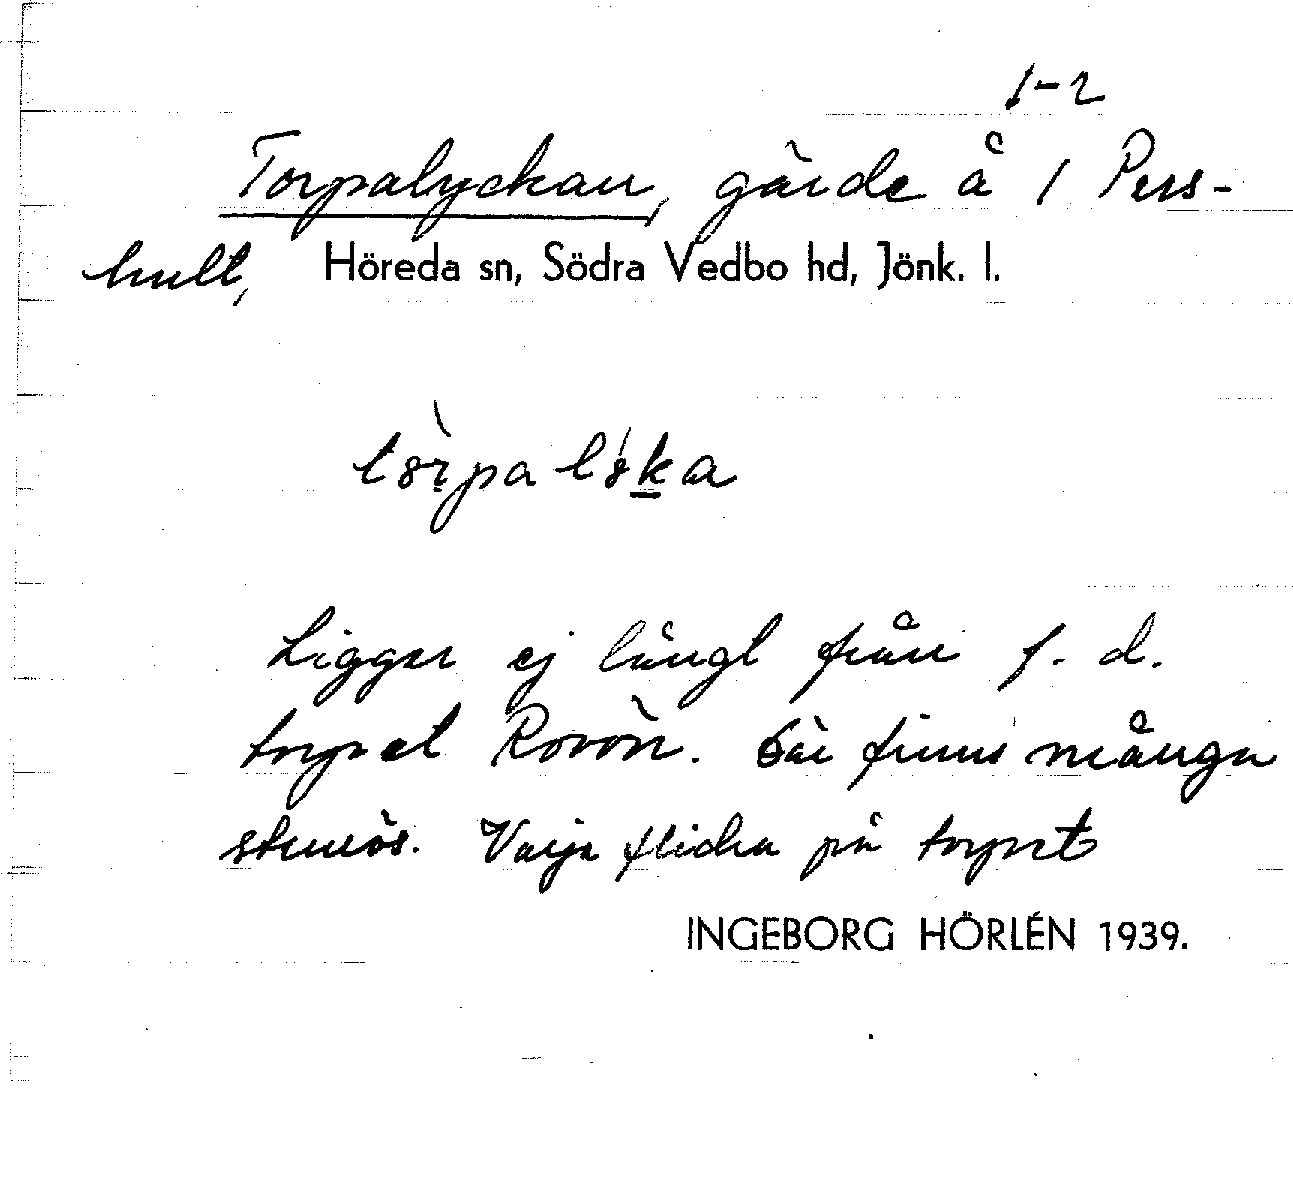 1-2
Torpalyckan, gärde å 1 Pers-
hult, Höreda sn, Södra Vedbo hd, Jönk. l.
Ligger ej långt från f. d.
torpet Där finns många
stenrös. Varje flicka på torpet
INGEBORG HÖRLÉN 1939.